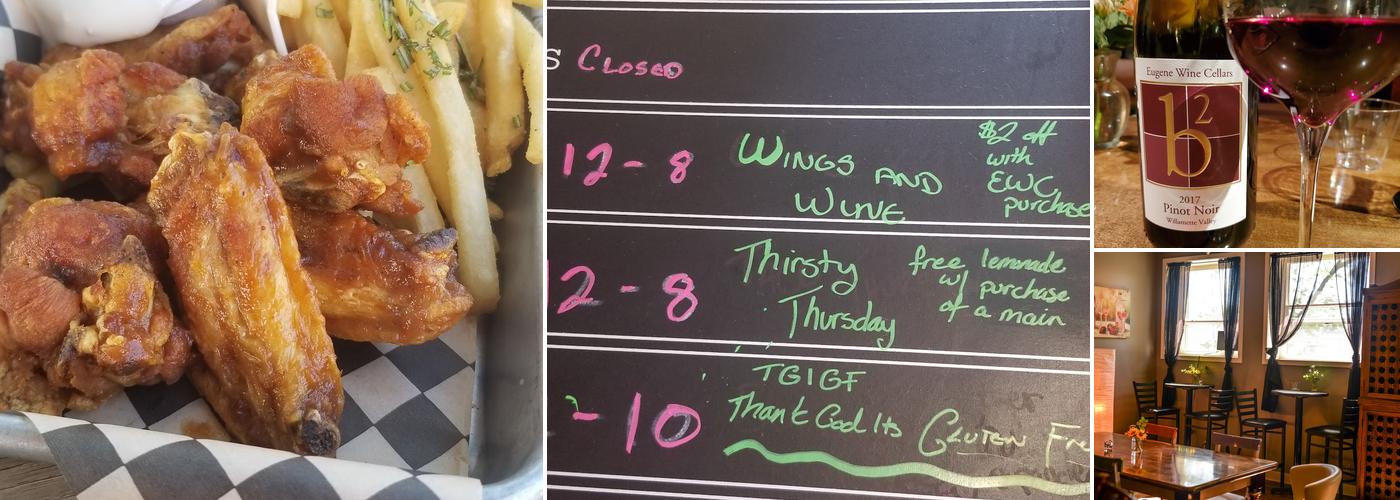 S CLOSED
12 - 8
WINGS AND
WINE
$2 off
with
EWC
purchase
2 - 8
Thirsty
Thursday
free lemonade
w/ purchase
of a main
- 10
TGIGF
Thank God Its GLUTEN
Eugene Wine Cellars
b2
2017
Pinot Noir
Willamette Valley